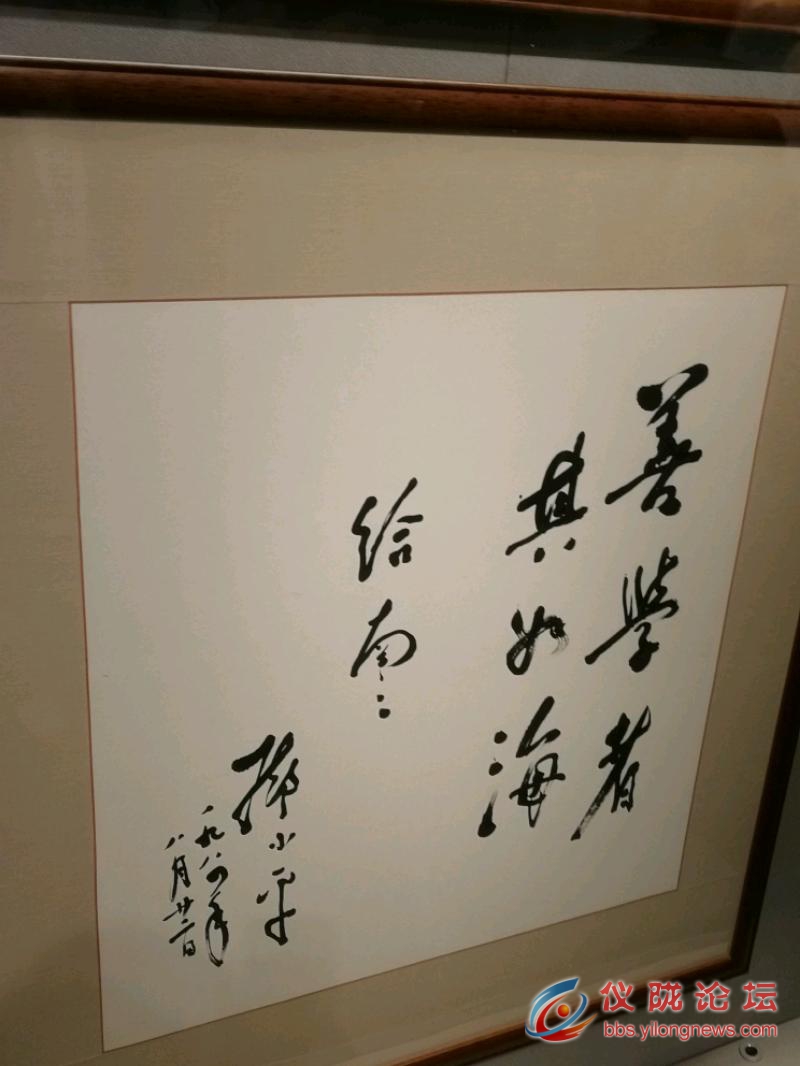 善學者
其如海
给南〻
邓小平
一九八四年
八月廿二日
仪陇论坛
bbs.yilongnews.com